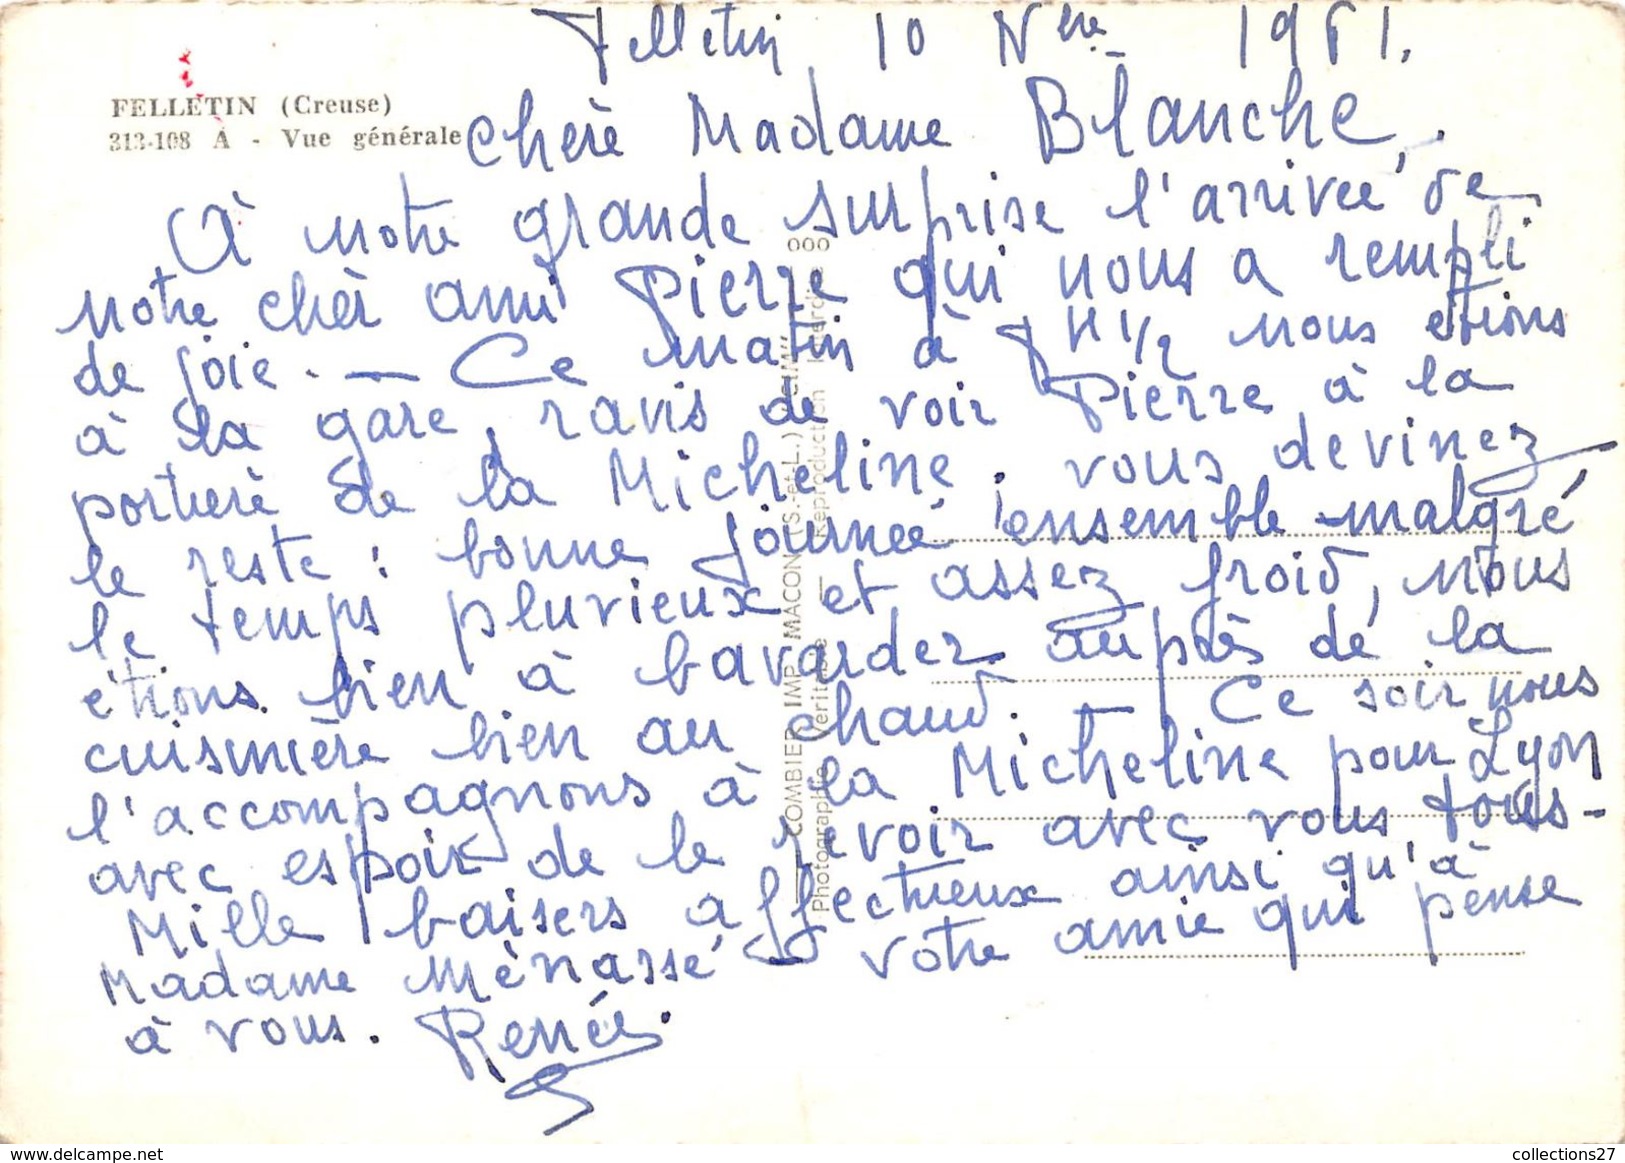 Felletin 10 Nbre 1961.
FELLETIN (Creuse)
313-108 A - Vue générale
Chère Madame Blanche,
À notre grande surprise l'arrivée de
notre cher ami Pierre qui nous a rempli
de joie. — Ce matin à 7H 1/2 nous étions
à la gare, ravis de voir Pierre à la
portière de la Micheline. vous devinez
le reste : bonne journée ensemble malgré
le temps pluvieux et assez froid, nous
étions bien à bavarder auprès de la
cuisinière bien au chaud. — Ce soir nous
l'accompagnons à la Micheline pour Lyon
avec espoir de le revoir avec vous tous-
Mille baisers affectueux ainsi qu'à
Madame Ménassé - votre amie qui pense
à vous. Renée.
COMBIER IMP. MACON (S.-et-L.) "CIM"
Photographie Véritable — Reproduction Interdite
collections27